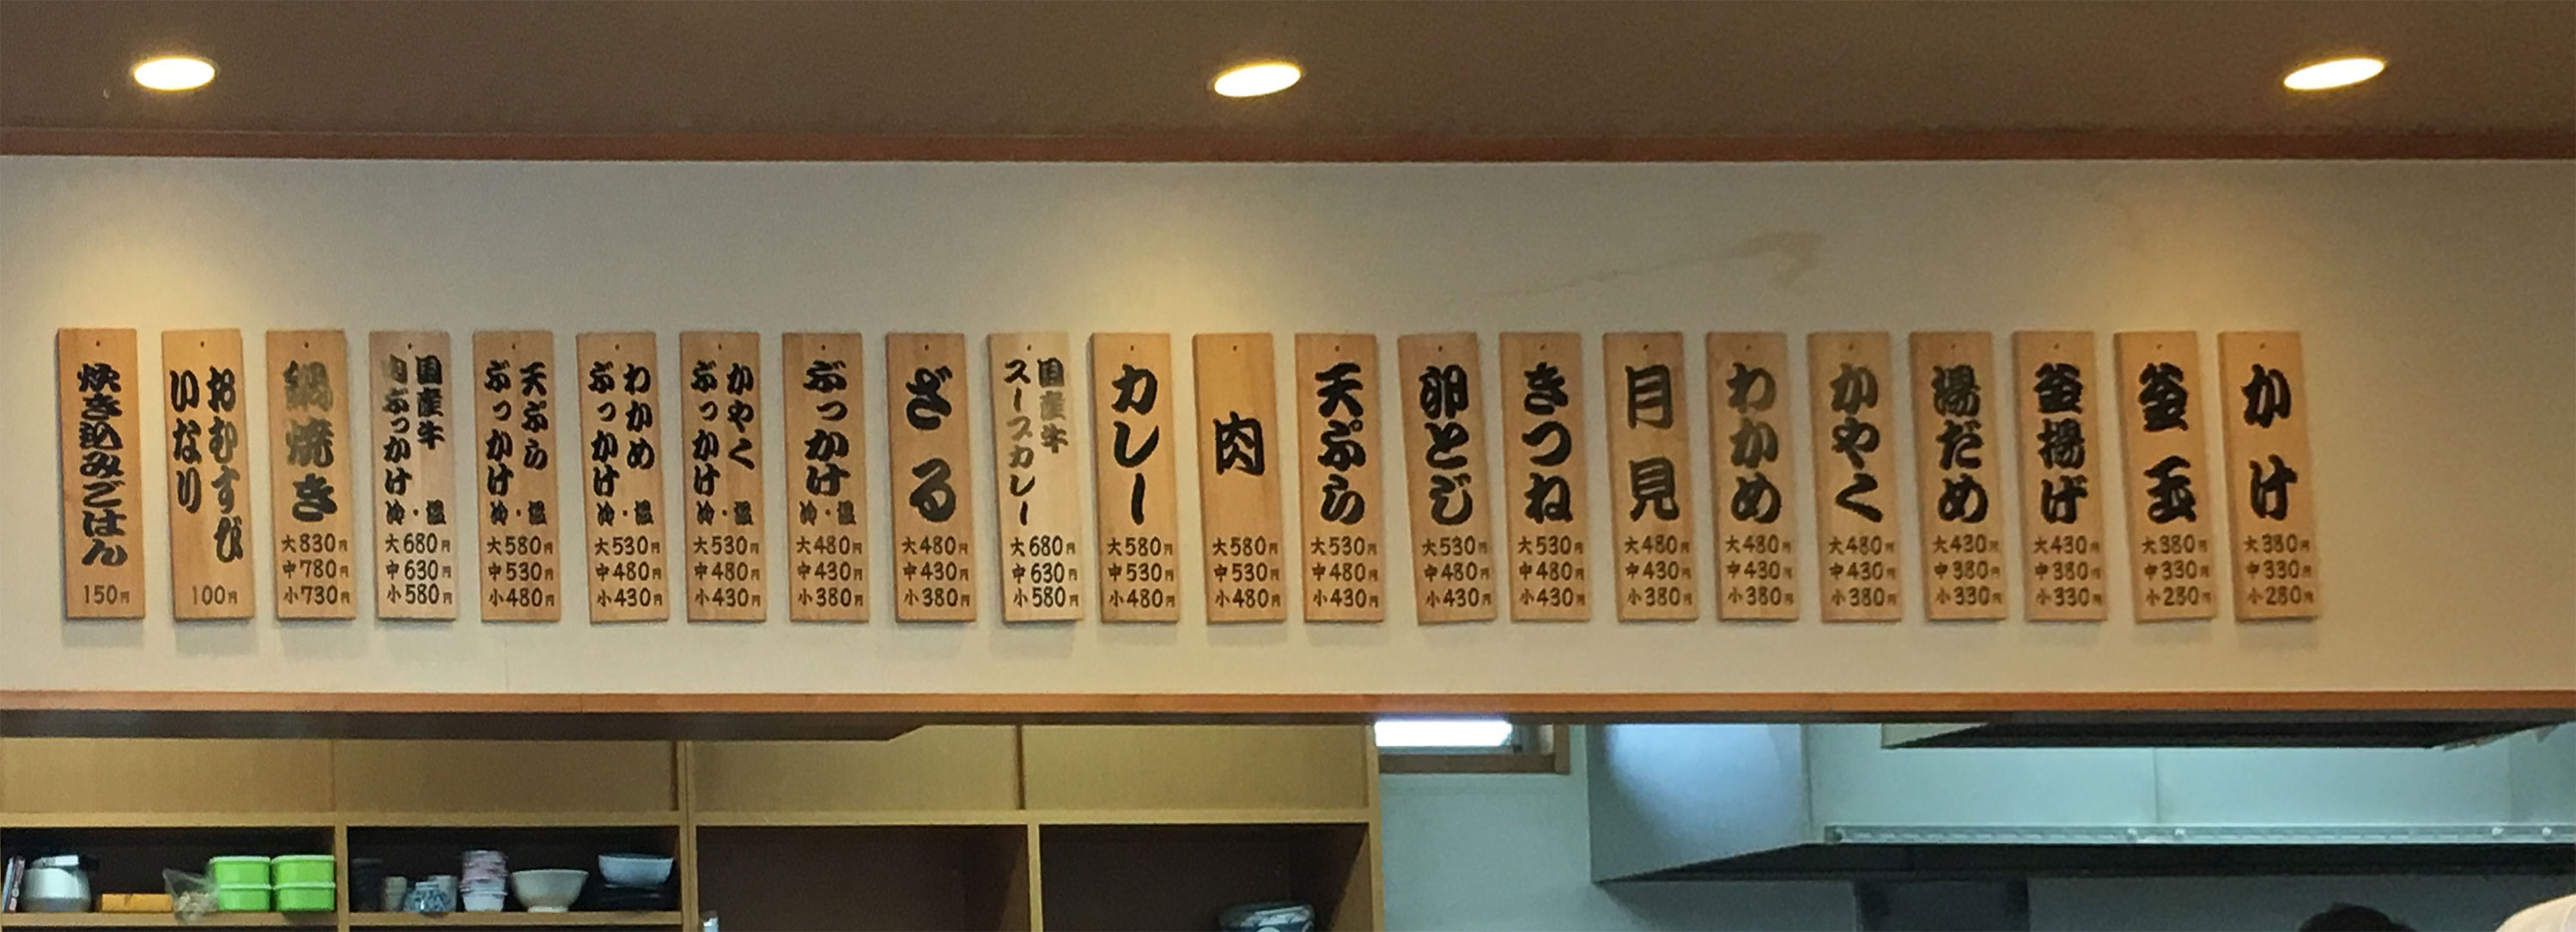 かけ
大380円
中330円
小280円
釜玉
大380円
中330円
小280円
釜揚げ
大430円
中380円
小330円
湯だめ
大430円
中380円
小330円
かやく
大480円
中430円
小380円
わかめ
大480円
中430円
小380円
月見
大480円
中430円
小380円
きつね
大530円
中480円
小430円
卵とじ
大530円
中480円
小430円
天ぷら
大530円
中480円
小430円
肉
大580円
中530円
小480円
カレー
大580円
中530円
小480円
国産牛
スープカレー
大680円
中630円
小580円
ざる
大480円
中430円
小380円
ぶっかけ
冷・温
大480円
中430円
小380円
かやく
ぶっかけ
冷・温
大530円
中480円
小430円
わかめ
ぶっかけ
冷・温
大530円
中480円
小430円
天ぷら
ぶっかけ
冷・温
大580円
中530円
小480円
国産牛
肉ぶっかけ
冷・温
大680円
中630円
小580円
鍋焼き
大830円
中780円
小730円
おむすび
いなり
100円
炊き込みごはん
150円